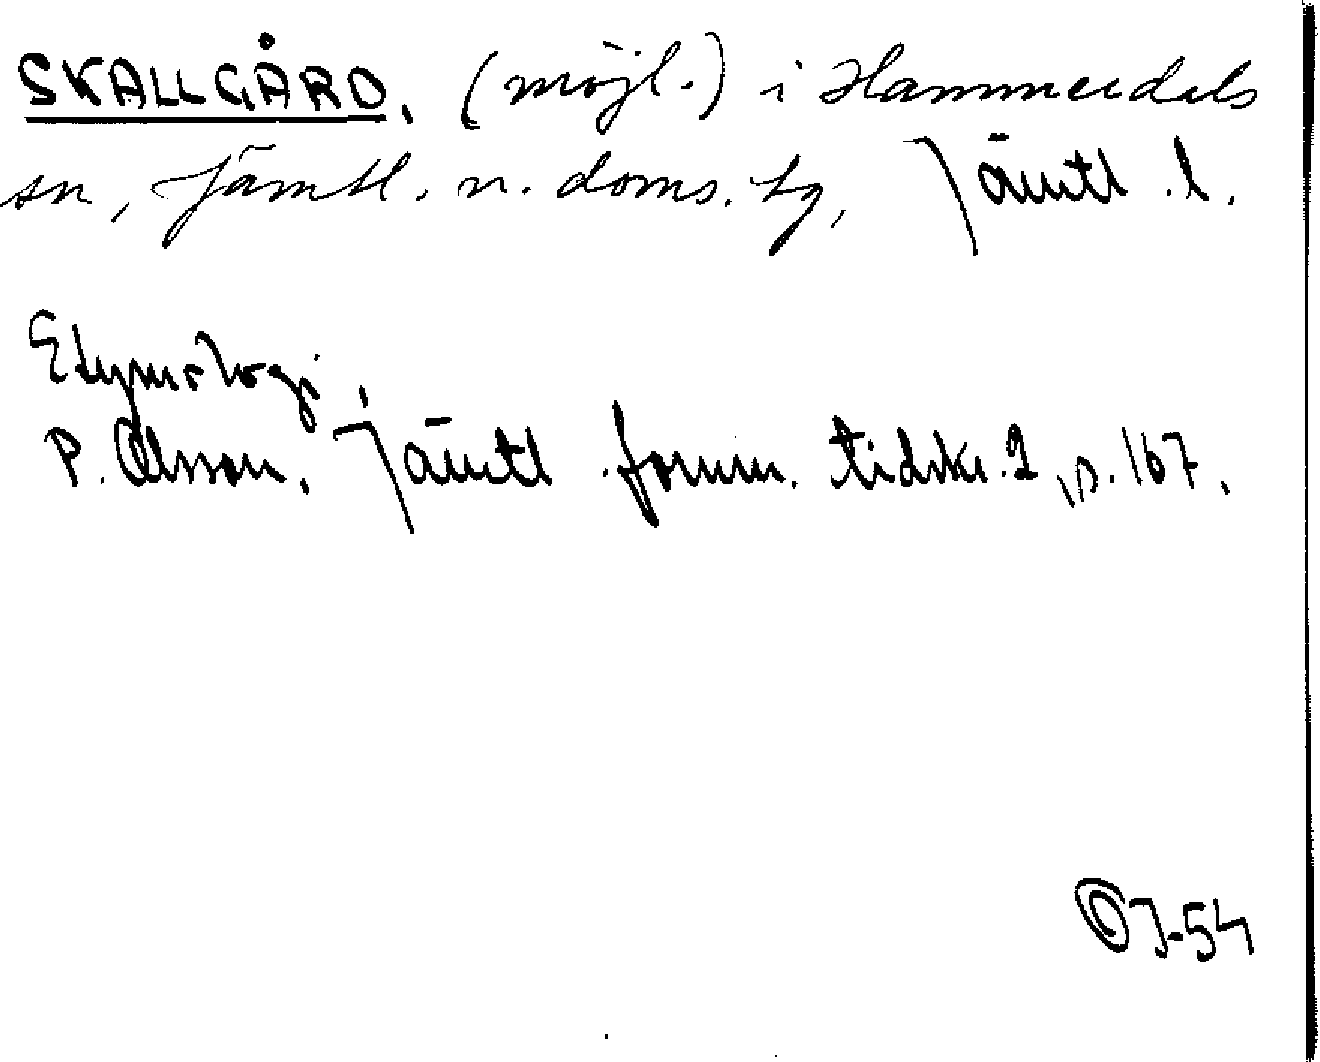 SKALLGÅRD, (möjl.) i Hammerdals
sn, Jämtl. n. doms. tg, Jämtl. l.
Etymologi,
P. Olsson, Jämtl. fornm. tidskr. 2, s. 167.
© J-54